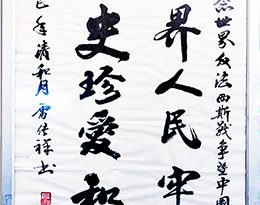 念世界反法西斯战争暨中国
界人民牢
史珍爱和
巳年清和月雷传祥书